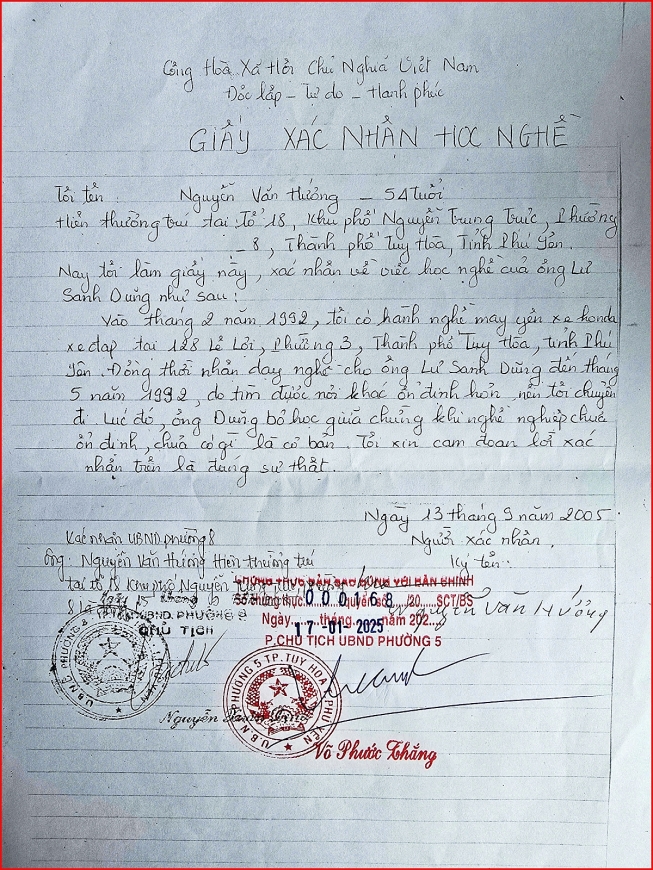 Cộng Hoà Xã Hội Chủ Nghĩa Việt Nam
Độc lập - Tự do - Hạnh phúc
GIẤY XÁC NHẬN HỌC NGHỀ
Tôi tên : Nguyễn Văn Hưởng - 54 Tuổi
Hiện thường trú tại: Tổ 18, Khu phố Nguyễn Trung Trực, Phường
- 8, Thành phố Tuy Hòa, Tỉnh Phú Yên.
Nay tôi làm giấy này, xác nhận về việc học nghề của ông Lư
Sanh Dũng như sau:
Vào tháng 2 năm 1992, tôi có hành nghề may yên xe honda
xe đạp tại 128 Lê Lợi, Phường 3, Thành phố Tuy Hòa, tỉnh Phú
Yên. Đồng thời nhận dạy nghề cho ông Lư Sanh Dũng đến tháng
5 năm 1992, do tìm được nơi khác ổn định hơn, nên tôi chuyển
đi. Lúc đó, ông Dũng bỏ học giữa chừng khi nghề nghiệp chưa
ổn định, chưa có gì là cơ bản. Tôi xin cam đoan lời xác
nhận trên là đúng sự thật.
Ngày 13 tháng 9 năm 2005.
Xác nhận UBND phường 8
Người xác nhận.
Ông: Nguyễn Văn Hưởng Hiện thường trú
Ký tên:
tại tổ 18 Khu phố Nguyễn Trung
CHỨNG THỰC BẢN SAO ĐÚNG VỚI BẢN CHÍNH
Số chứng thực 000168 quyển số /20.....SCT/BS
Nguyễn Văn Hưởng
CHỦ TỊCH
Ngày......tháng......năm 202....
17-01-2025
P.CHỦ TỊCH UBND PHƯỜNG 5
U.B.N.D PHƯỜNG 5 TP.TUY HOÀ T.PHÚ YÊN
Võ Phước Thắng